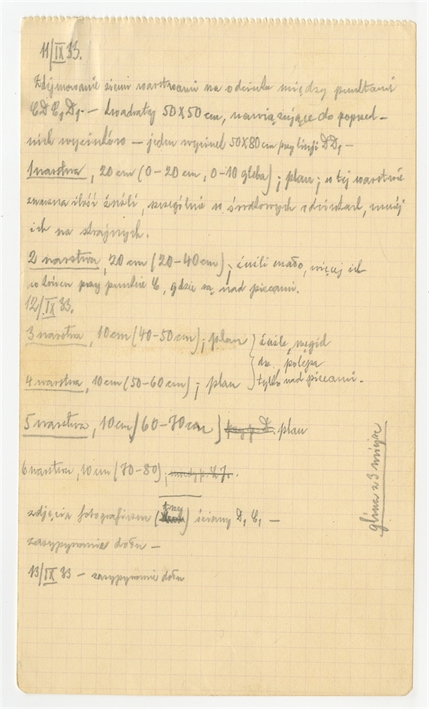 11/IX 83.
Zdejmowanie ziemi warstwami na odcinku między punktami
C D C₁ D₁. – kwadraty 50X50 cm, nawiązujące do poprzed-
nich wycinków – jeden wycinek 50X80cm przy linji D D₁ –
1 warstwa, 20 cm (0–20 cm, 0–10 gleba); plan; w tej warstwie
znaczna ilość żużli, szczególnie w środkowych odcinkach, mniej
ich na skrajnych.
2 warstwa, 20 cm (20–40 cm); żużli mało, więcej ich
w końcu przy punkcie C, gdzie są nad piecami.
12/IX 83.
3 warstwa, 10 cm (40–50 cm); plan } żużle,
4 warstwa, 10 cm (50–60 cm); plan tylko nad piecami.
5 warstwa, 10 cm (60–70 cm) plan
6 warstwa, 10 cm (70–80),
zdjęcia fotograficzne ( ) ściany D₁ C₁ –
zasypywanie dołu –
13/IX 83 – zasypywanie dołu
glina z 3 miejsc